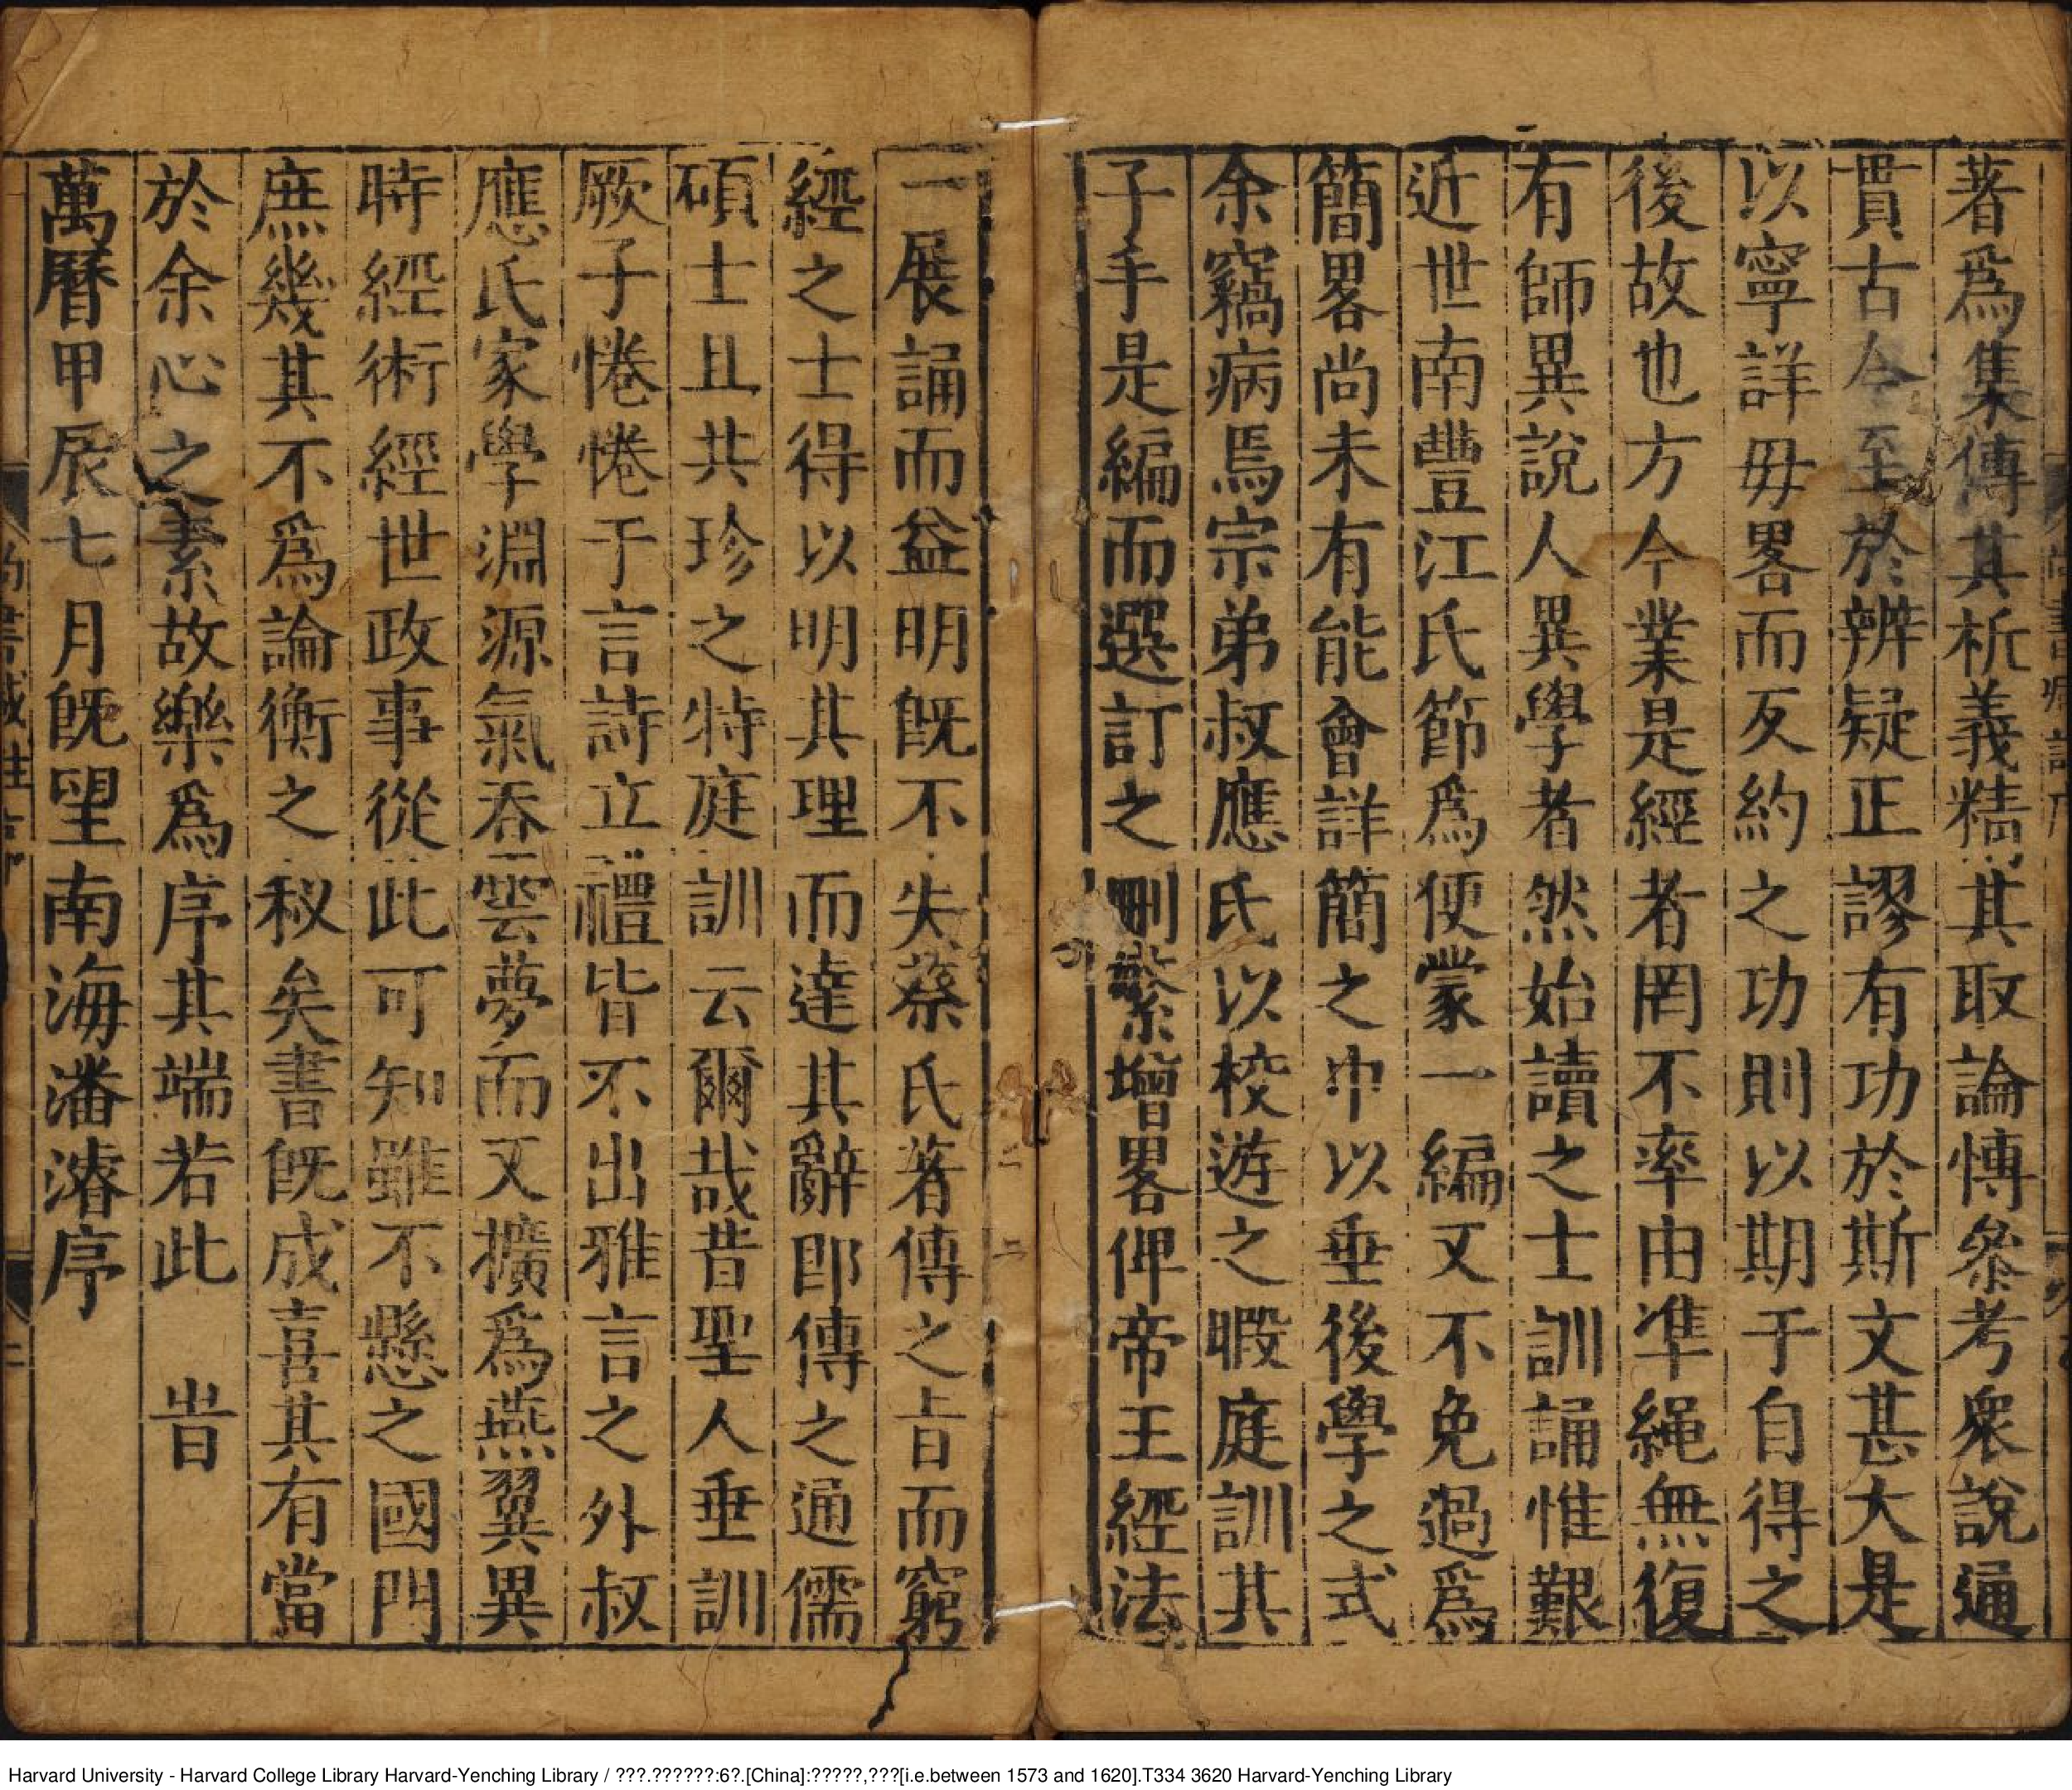 著爲集傳其祈義精其取論愽叅考衆說通
貫古今至於辨疑正謬有功於斯文甚大是
以寧詳毋畧而反約之功則以期于自得之
後故也方今業是經者罔不率由凖繩無復
有師異說人異學者然始讀之士訓誦惟艱
近世南豐江氏節爲便蒙一編又不免過爲
簡畧尚未有能會詳簡之中以垂後學之式
余竊病焉宗弟叔應氏以校遊之暇庭訓其
子手是編而選訂之刪繁增畧俾帝王經法
一展誦而益明旣不失蔡氏著傳之旨而窮
經之士得以明其理而達其辭卽傳之通儒
碩士且共珍之特庭訓云爾哉昔聖人垂訓
厥子惓惓于言詩立禮皆不出雅言之外叔
應氏家學淵源氣吞雲夢而又擴爲燕翼異
時經術經世政事從此可知雖不懸之國門
庶幾其不爲論衡之秘矣書旣成喜其有當
於余心之素故樂爲序其端若此 旹
萬曆甲辰七月旣望南海潘濬序
Harvard University - Harvard College Library Harvard-Yenching Library / ???.??????:6?.[China]:?????,???[i.e.between 1573 and 1620].T334 3620 Harvard-Yenching Library